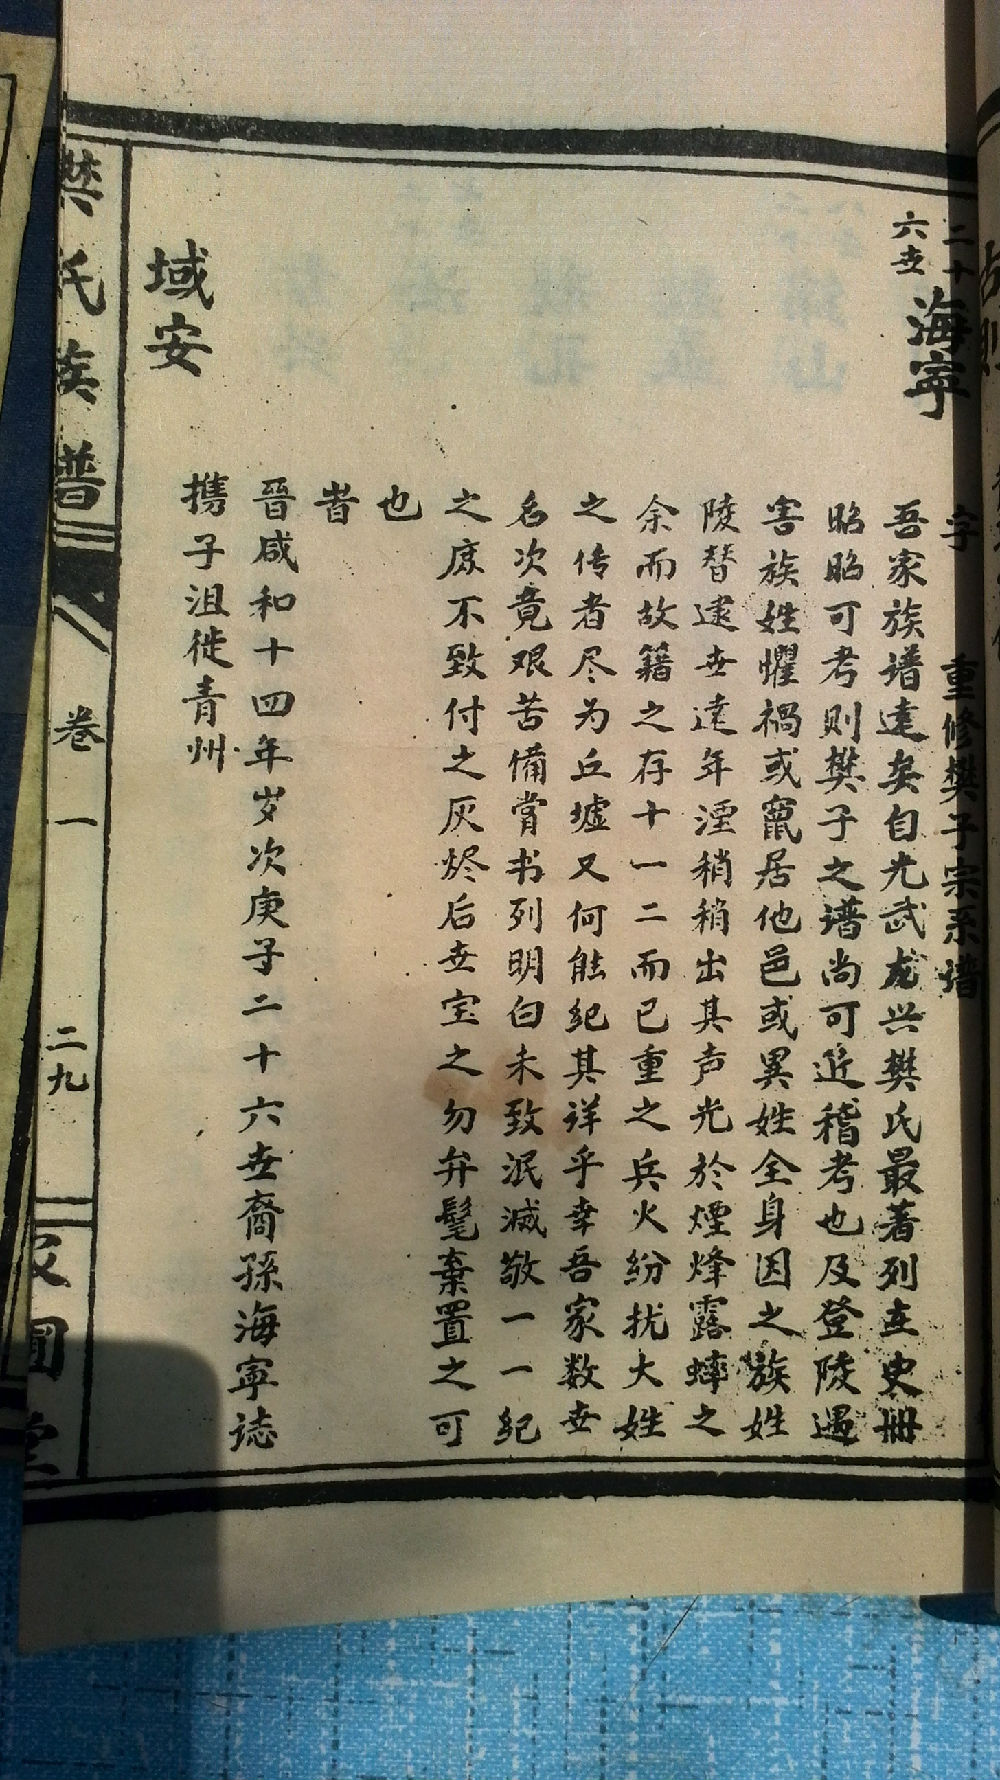 二十六世
海寧
字 重修樊子宗系谱
吾家族谱遠矣自光武龙兴樊氏最著列在史册
昭昭可考则樊子之谱尚可近稽考也及登陵遇
害族姓懼禍或竄居他邑或異姓全身因之族姓
陵替逮世遠年湮稍稍出其声光於煙烽露蟀之
余而故籍之存十一二而已重之兵火纷扰大姓
之传者尽为丘墟又何能纪其详乎幸吾家数世
名次竟艰苦備嘗书列明白未致泯滅敬一一纪
之庶不致付之灰烬后世宝之勿弁髦棄置之可
也
旹
晉咸和十四年岁次庚子二十六世裔孫海寧誌
携子沮徙青州
域安
樊氏族譜
卷一
二九